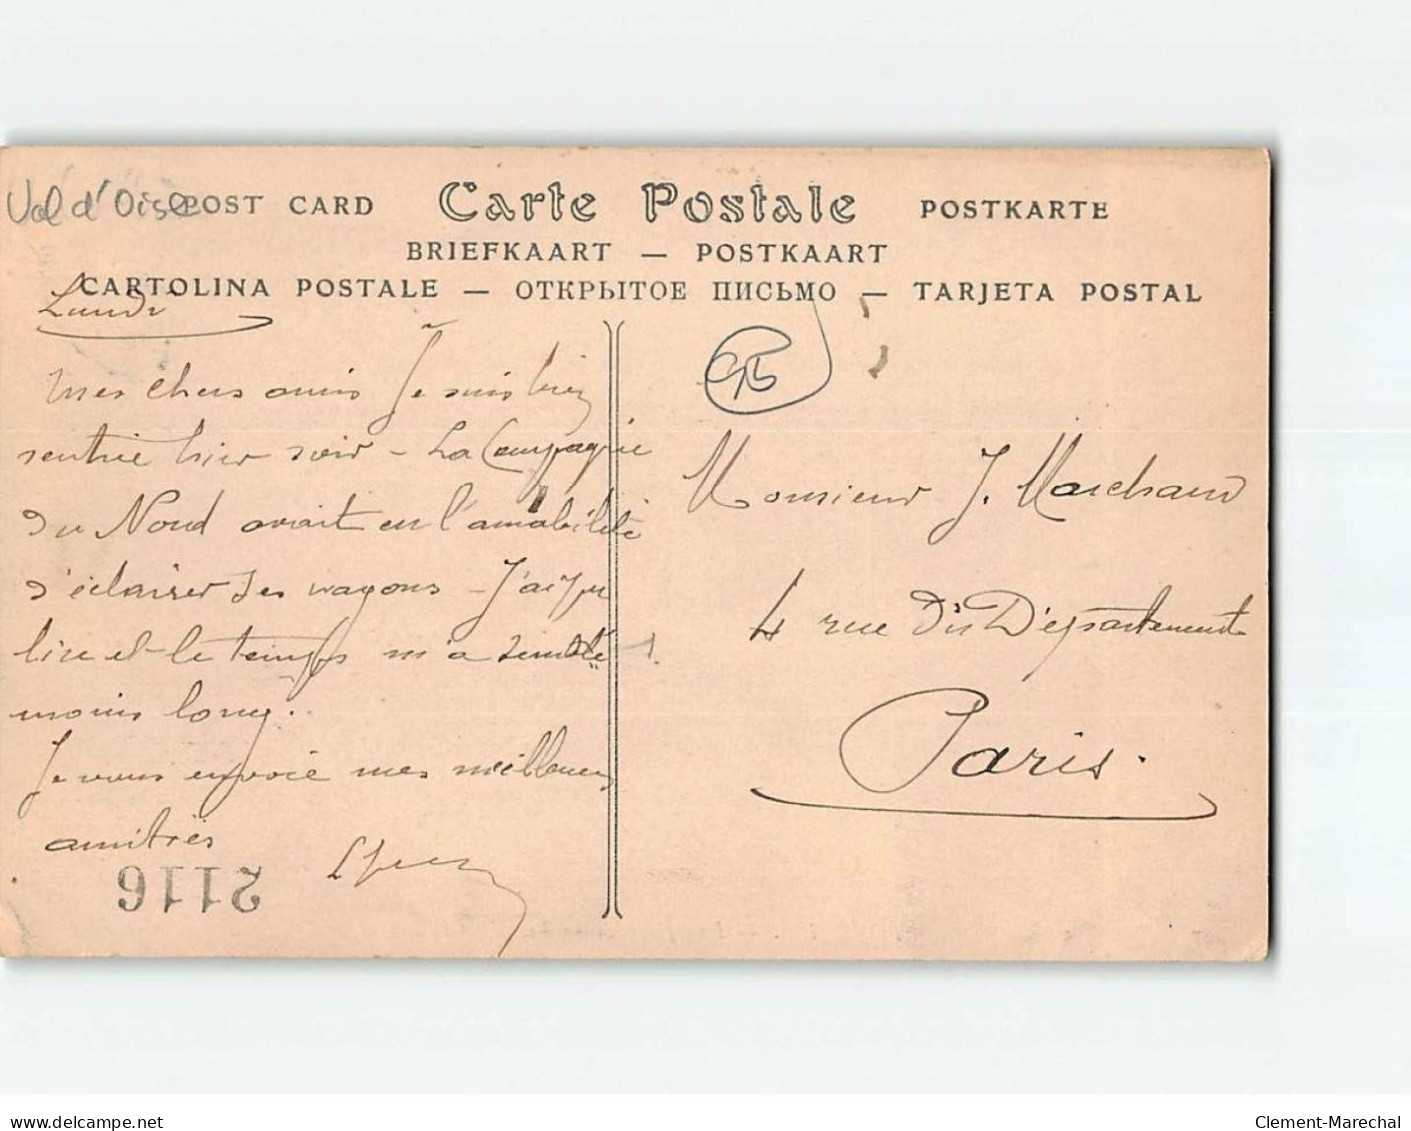 Val d'Oise
POST CARD Carte Postale POSTKARTE
BRIEFKAART — POSTKAART
CARTOLINA POSTALE — ОТКРЫТОЕ ПИСЬМО — TARJETA POSTAL
Lundi
95
Mes chers amis Je suis bien
rentrée hier soir – La Compagnie
du Nord avait eu l'amabilité
d'éclairer ses wagons – J'ai pu
lire et le temps m'a semblé
moins long.
Je vous envoie mes meilleures
amitiés
2116
Monsieur J. Marchand
4 rue du Département
Paris.
www.delcampe.net
Clement-Marechal